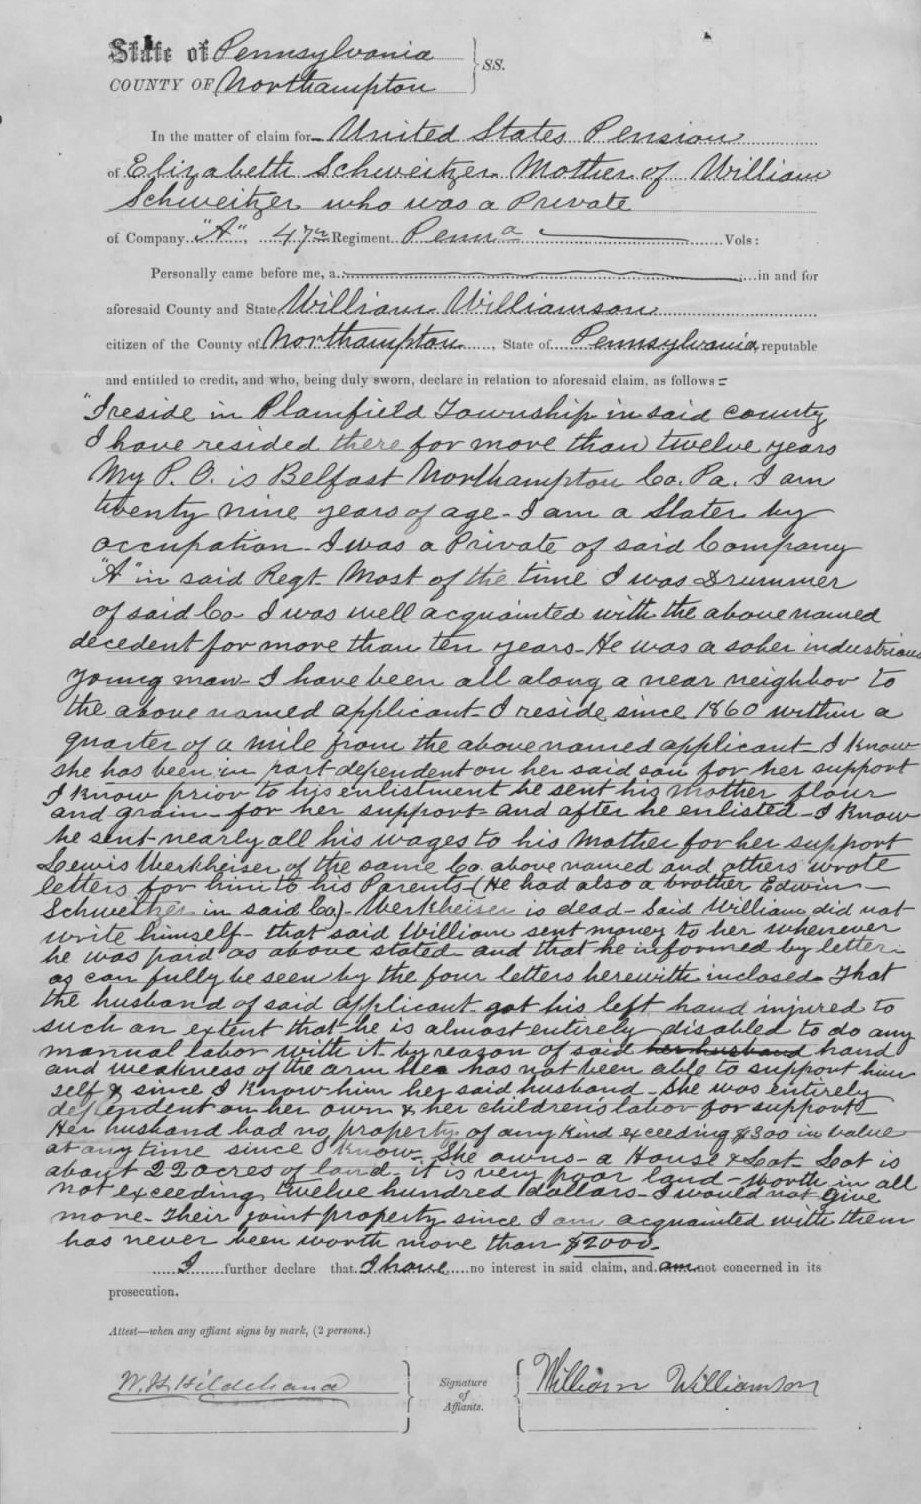 State of Pennsylvania } SS.
COUNTY OF Northampton
In the matter of claim for United States Pension
of Elizabeth Schweitzer Mother of William
Schweitzer who was a Private
of Company "A", 47th Regiment Penna Vols:
Personally came before me, a in and for
aforesaid County and State William Williamson
citizen of the County of Northampton, State of Pennsylvania, reputable
and entitled to credit, and who, being duly sworn, declare in relation to aforesaid claim, as follows:
"I reside in Plainfield Township in said county
I have resided there for more than twelve years
My P. O. is Belfast Northampton Co. Pa. I am
twenty nine years of age - I am a Slater by
occupation - I was a Private of said Company
"A" in said Regt. Most of the time I was Drummer
of said Co - I was well acquainted with the above named
decedent for more than ten years - He was a sober industrious
young man - I have been all along a near neighbor to
the above named applicant - I reside since 1860 within a
quarter of a mile from the above named applicant - I know
she has been in part dependent on her said son for her support
I know prior to his enlistment he sent his mother flour
and grain - for her support - and after he enlisted - I know
he sent nearly all his wages to his Mother for her support
Lewis Werkheiser of the same Co. above named and others wrote
letters for him to his Parents - (He had also a brother Edwin -
Schweitzer in said Co.) - Werkheiser is dead - Said William did not
write himself - that said William sent money to her whenever
he was paid as above stated - and that he informed by letter -
as can fully be seen by the four letters herewith inclosed - That
the husband of said applicant got his left hand injured to
such an extent that he is almost entirely disabled to do any
manual labor with it by reason of said her husband hand
and weakness of the arm He has not been able to support him
self & since I know him her said husband - She was entirely
dependent on her own & her children's labor for support -
Her husband had no property of any kind exceeding $300 in value
at any time since I know - She owns - a House & Lot - Lot is
about 22 acres of land - it is very poor land - worth in all
not exceeding twelve hundred dollars - I would not give
more - Their joint property since I am acquainted with them
has never been worth more than $2000 -
I further declare that I have no interest in said claim, and am not concerned in its
prosecution.
Attest—when any affiant signs by mark, (2 persons.)
W. H. Hildebrand } Signature of Affiants. { William Williamson